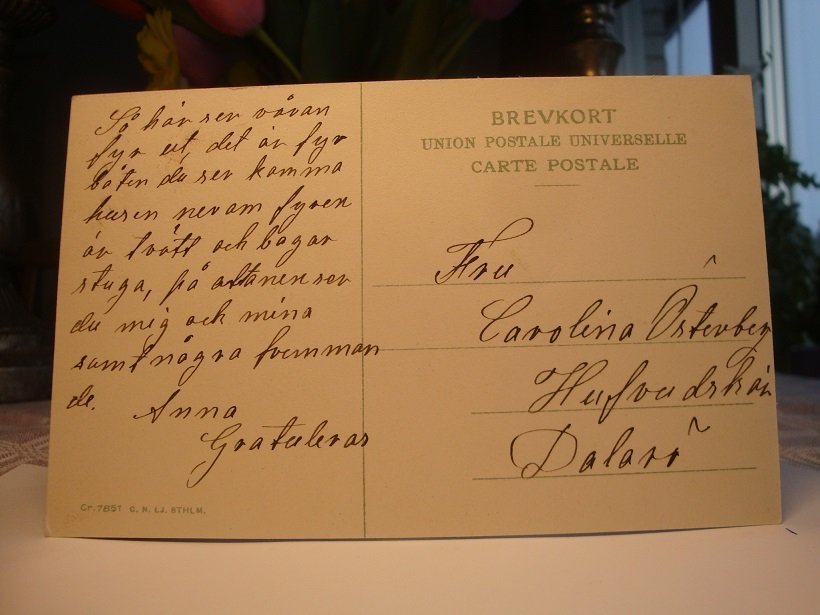 Så här ser våran
fyr ut, det är fyr
båten du ser komma
husen nevam fyren
är tvätt och bagar
stuga, på altanen ser
du mig och mina
samt några fremman
de. Anna
Gratuleras
Cr. 7851 C. N. LJ. STHLM.
BREVKORT
UNION POSTALE UNIVERSELLE
CARTE POSTALE
Fru
Carolina Österberg
Hufvudskär
Dalarö